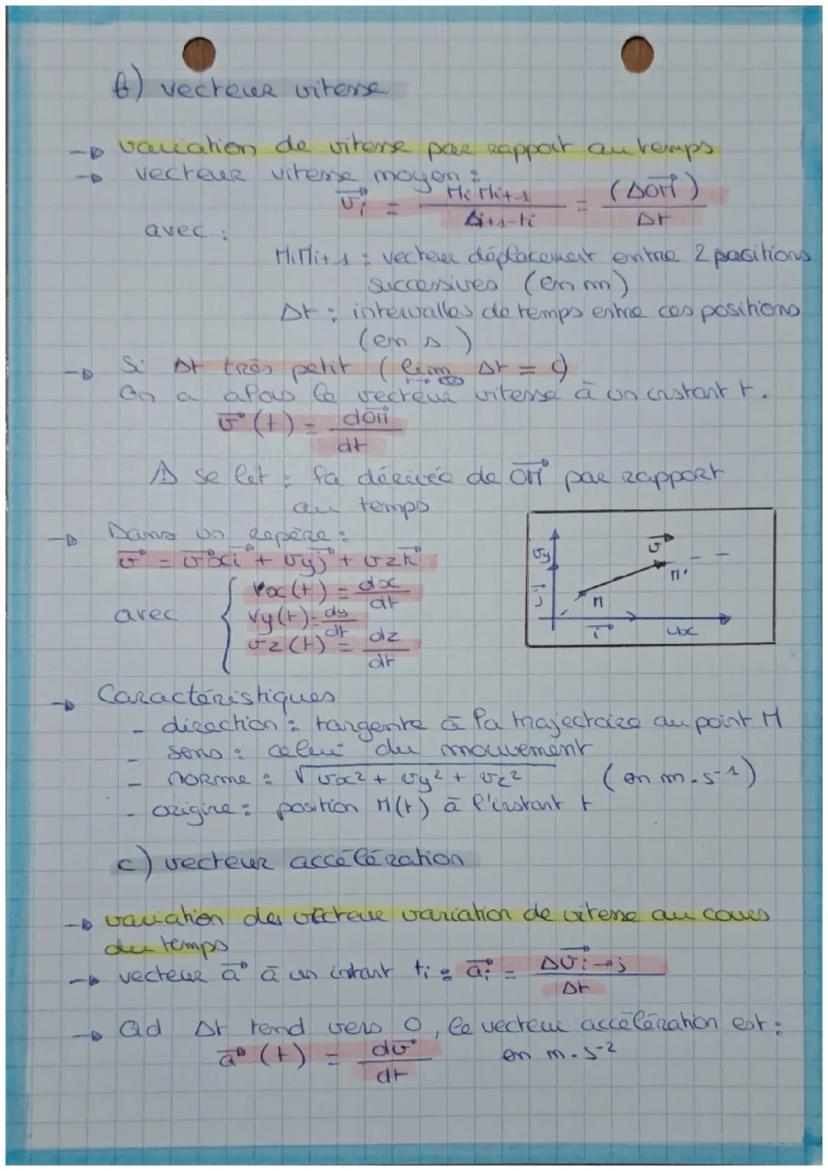 b) vecteur vitesse
→ variation de vitesse par rapport au temps
→ vecteur vitesse moyen :
v⃗i = MiMi+1 / ti+1-ti = (ΔOM⃗) / Δt
avec :
MiMi+1 : vecteur déplacement entre 2 positions
successives (en m)
Δt : intervalles de temps entre ces positions
(en s)
→ Si Δt très petit (lim Δt = 0)
On a alors le vecteur vitesse à un instant t.
v⃗(t) = dOM⃗ / dt
⚠ se lit : la dérivée de OM⃗ par rapport
au temps
→ Dans un repère :
v⃗ = vxi⃗ + vyj⃗ + vzk⃗
avec { vx(t) = dx/dt
vy(t) = dy/dt
vz(t) = dz/dt
vy
v⃗
M'
j⃗
M
i⃗
vx
→ Caractéristiques
- direction : tangente à la trajectoire au point M
- sens : celui du mouvement
- norme : √vx² + vy² + vz² (en m.s⁻¹)
- origine : position M(t) à l'instant t
c) vecteur accélération
→ variation du vecteur variation de vitesse au cours
du temps
→ vecteur a⃗ à un intant ti : a⃗i = Δv⃗i→j / Δt
→ Qd Δt tend vers 0, le vecteur accélération est :
a⃗(t) = dv⃗ / dt en m.s⁻²